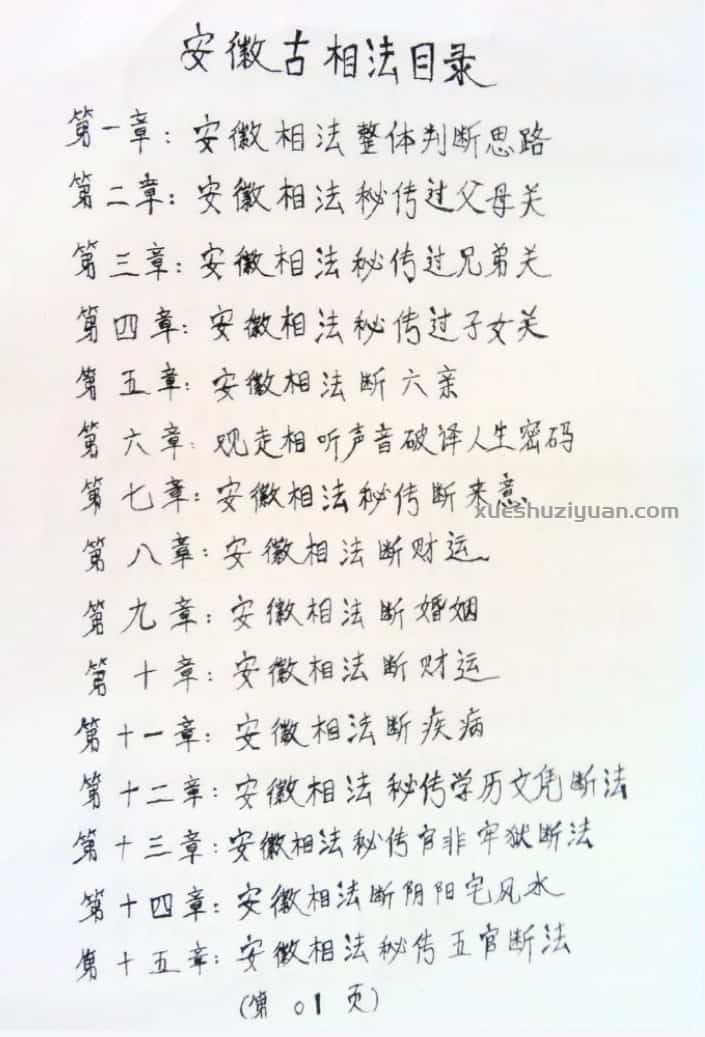 安徽古相法目录
第一章：安徽相法整体判断思路
第二章：安徽相法秘传过父母关
第三章：安徽相法秘传过兄弟关
第四章：安徽相法秘传过子女关
第五章：安徽相法断六亲
第六章：观走相听声音破译人生密码
第七章：安徽相法秘传断来意
xueshuziyuan.com
第八章：安徽相法断财运
第九章：安徽相法断婚姻
第十章：安徽相法断财运
第十一章：安徽相法断疾病
第十二章：安徽相法秘传学历文凭断法
第十三章：安徽相法秘传官非牢狱断法
第十四章：安徽相法断阴阳宅风水
第十五章：安徽相法秘传五官断法
(第01页)